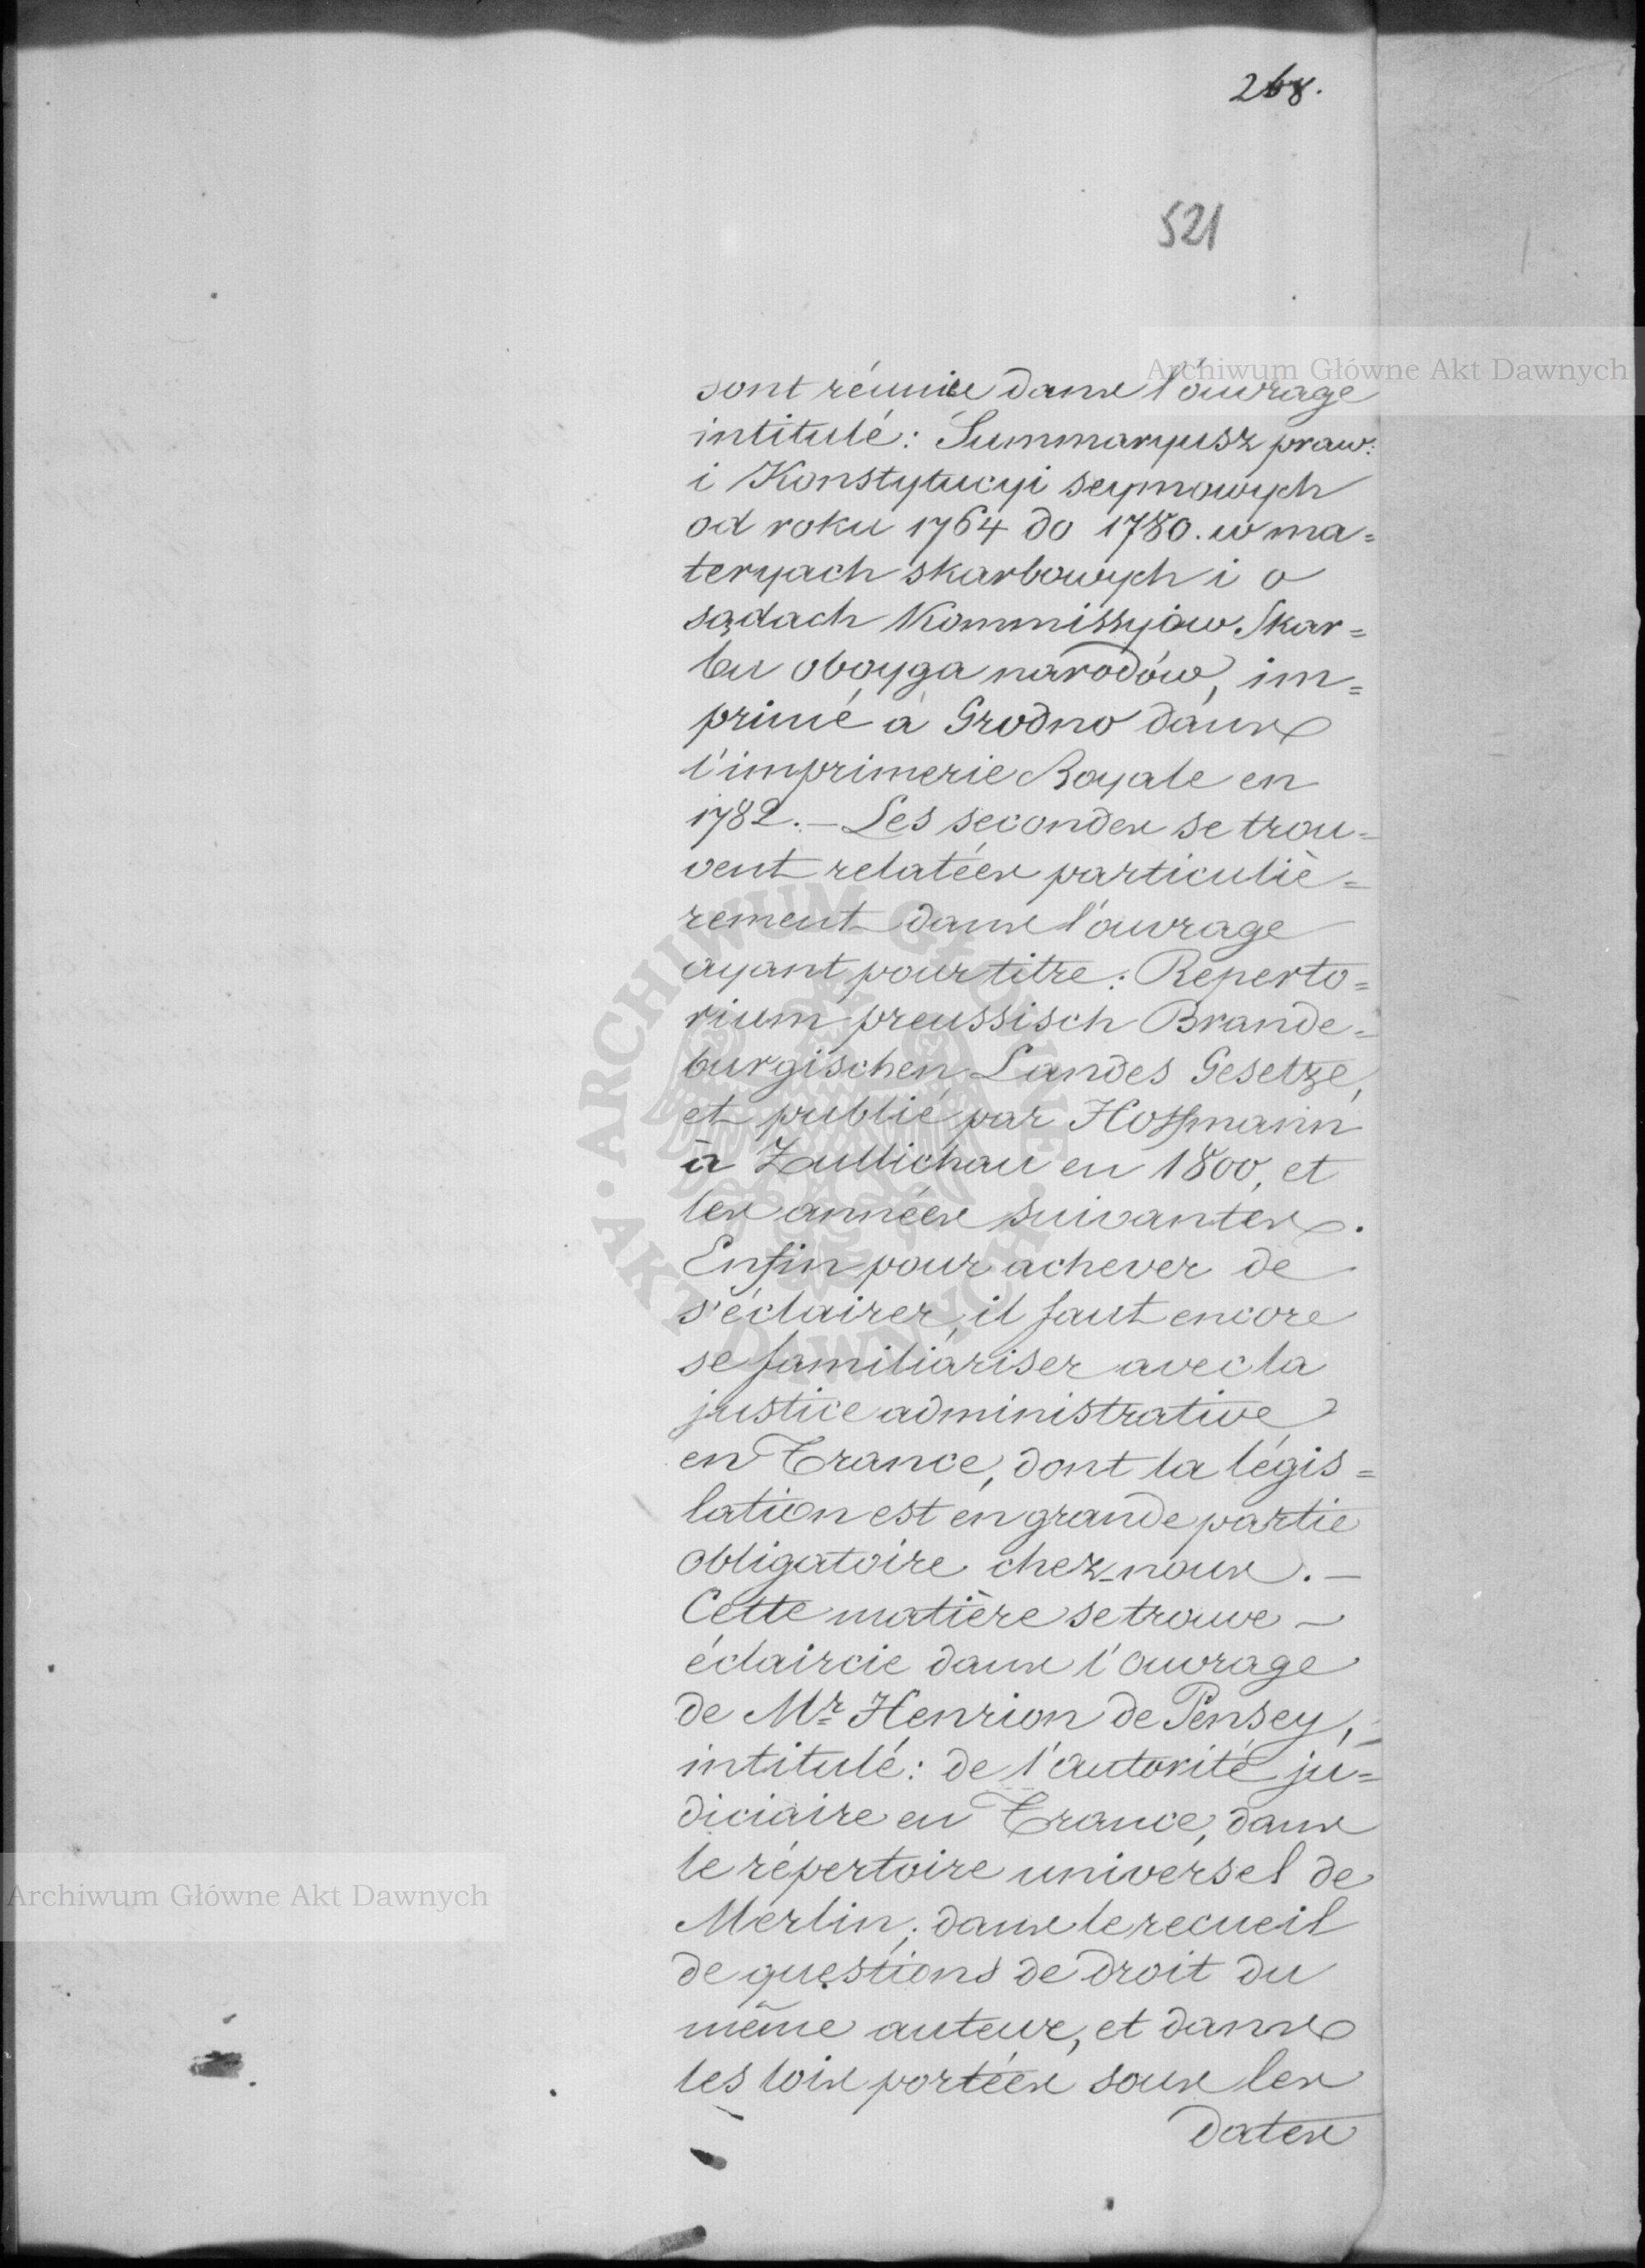 268.
521
Archiwum Główne Akt Dawnych
sont réunies dans l'ouvrage
intitulé: Summaryusz praw:
i Konstytucyi seymowych
od roku 1764 do 1780. w ma=
teryach skarbowych i o
sądach Kommissyiow Skar=
bu oboyga narodów, im=
primé à Grodno dans
l'imprimerie Royale en
1782.— Les secondes se trou=
vent relatées particuliè=
rement dans l'ouvrage
ayant pour titre: Reperto=
rium preussisch Brande=
burgischen Landes Gesetze,
et publié par Hoffmann
à Zullichau en 1800, et
les années suivantes.
Enfin pour achever de
s'éclairer, il faut encore
se familiariser avec la
justice administrative
en France, dont la légis=
lation est en grande partie
obligatoire chez-nous.—
Cette matière se trouve —
éclaircie dans l'ouvrage
de Mr Henrion de Pensey,
intitulé: de l'autorité ju=
diciaire en France, dans
le répertoire universel de
Merlin; dans le recueil
de questions de droit du
même auteur, et dans
les lois portées sous les
dates
ARCHIWUM GŁÓWNE
AKT DAWNYCH
Archiwum Główne Akt Dawnych